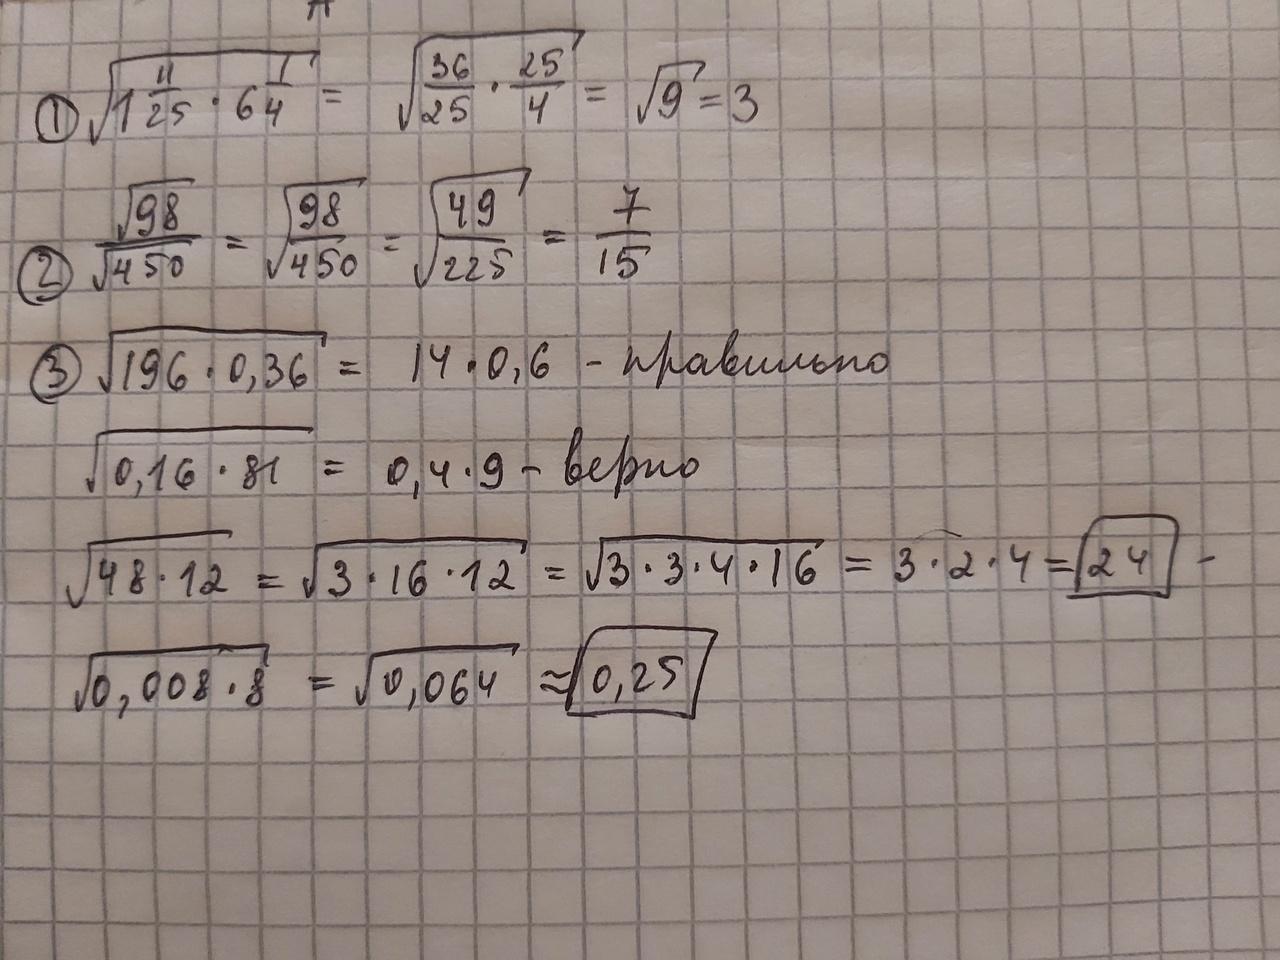 ① √(1 11/25 · 6 1/4) = √(36/25 · 25/4) = √9 = 3
② √98/√450 = √(98/450) = √(49/225) = 7/15
③ √(196 · 0,36) = 14 · 0,6 - правильно
√(0,16 · 81) = 0,4 · 9 - верно
√(48 · 12) = √(3 · 16 · 12) = √(3 · 3 · 4 · 16) = 3 · 2 · 4 = 24 -
√(0,008 · 8) = √0,064 ≈ 0,25